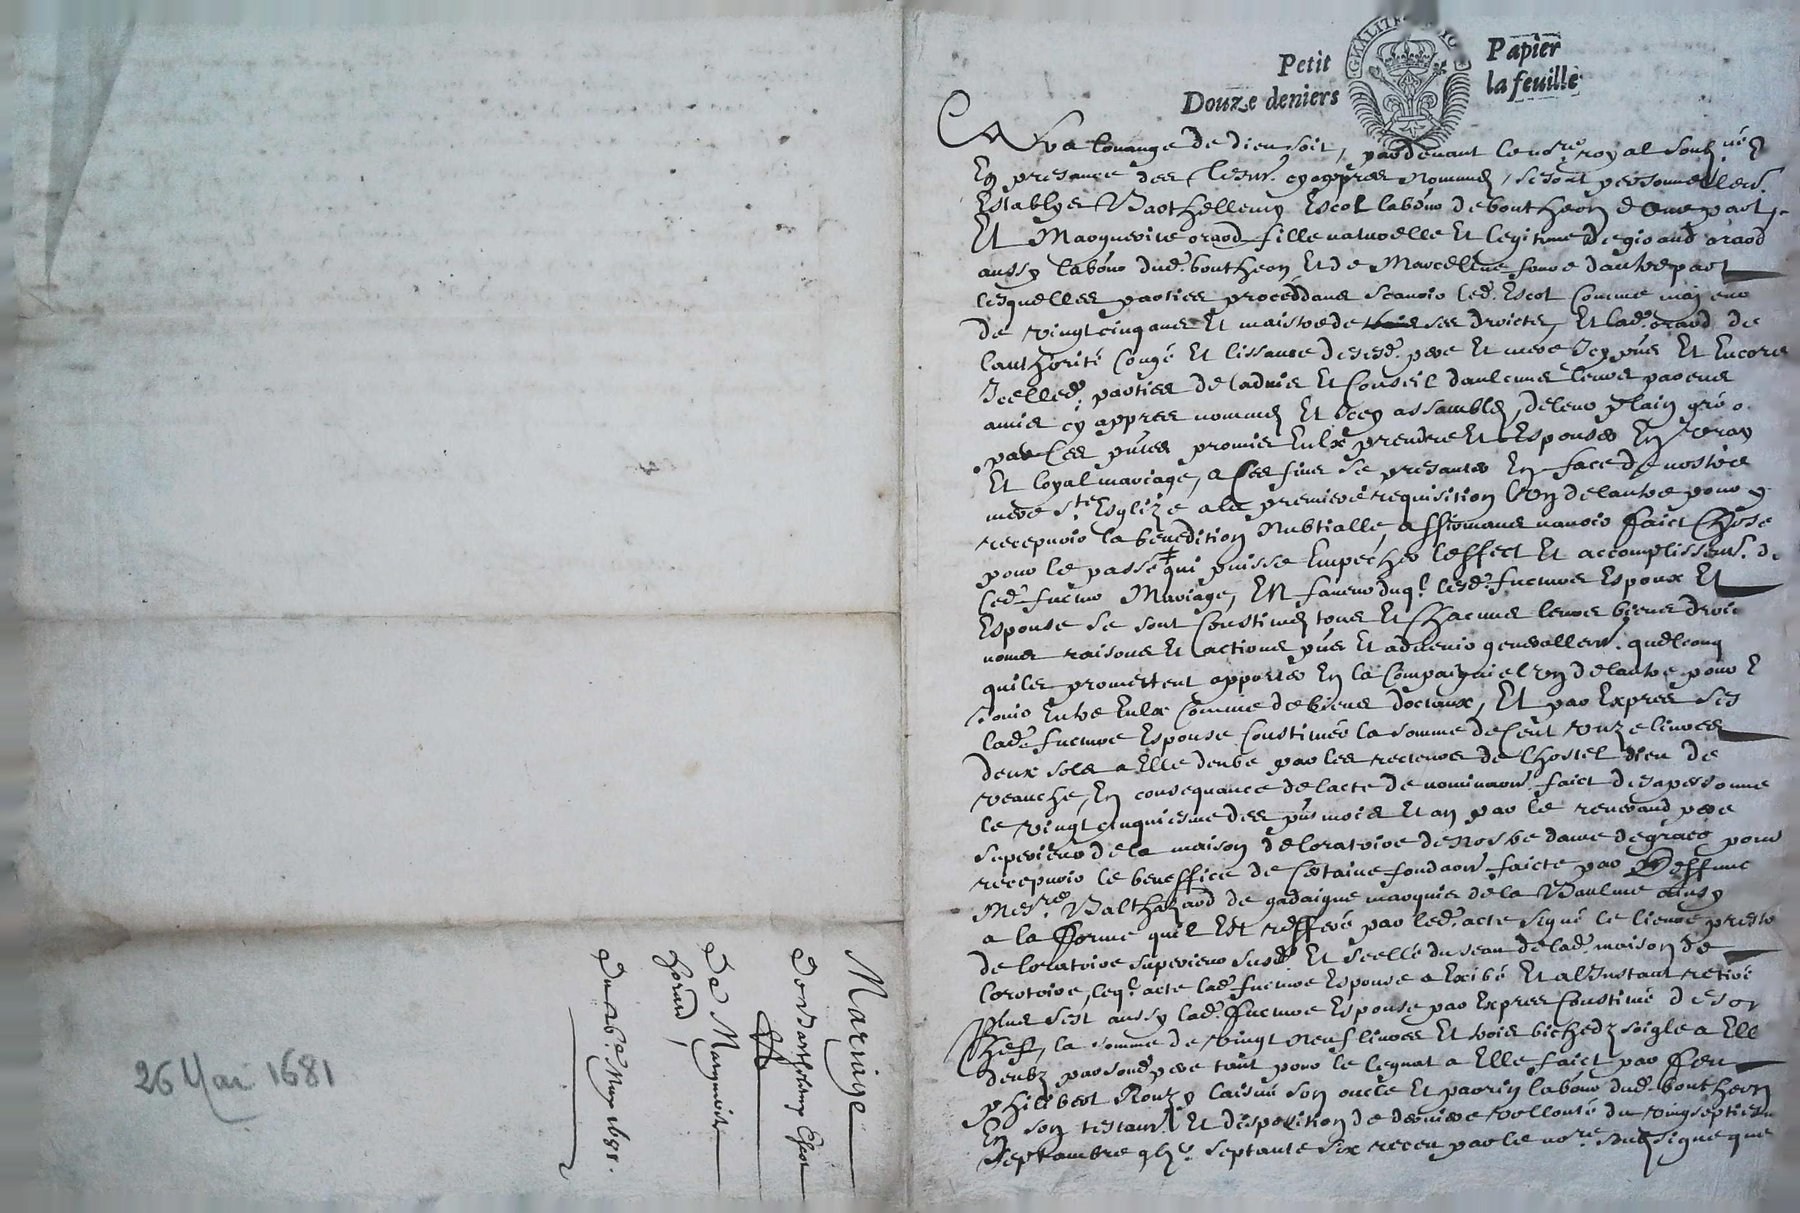 Mariage
De Barthelemy Escot
Et
De Marguerite
Horard,
Du 26e May 1681.
26 Mai 1681
Petit Papier
Douze deniers la feuille
A la louange de dieu soit, pardevant le nore royal soubz.né
En presance des tesm. cy appres nommez, se sont personnellemt.
Establys Barthellemy Escot labour de boutheon d'une part,
Et Marguerite orard fille naturelle Et legitime de girard orard
aussy labour dud. boutheon Et de Marcelline d'autre part
lesquelles parties proceddans scavoir led. Escot comme majeur
de vingt cinq ans Et maistre de ses droicts, Et lad. orard de
l'authorité congé Et lissance de sesd. pere Et mere Icy pnts Et Encores
Icelled. parties de l'advis Et Conseil d'aulcuns leurs parens
amis cy appres nommez Et Icy assamblez, de leur plain gré
par ces pntes promis Eulx prendre Et Espouser En vray
Et loyal mariage, a ces fins se presanter En face de nostre
mere ste Esglize a la premiere requisition l'un de l'autre pour y
recepvoir la benedition Nubtialle, affirmans n'avoir faict chose
pour le passé qui puisse Empecher l'effect Et accomplissemt. de
led. futur Mariage, En faveur duql. lesd. futurs Espoux Et
Espouse se sont Constitués tous Et Chacuns leurs biens droic
noms raisons Et actions pnts Et advenir generallemt. quelconq
qu'ils promettent apporter En la Compaignie l'un de l'autre pour E
jouir Entre Eulx Comme de biens doctaux, Et par Expres s'est
lad. future Espouse Constituée la somme de Cent unze livres
deux sols a Elle deube par les recteurs de l'hostel dieu de
veauche, En consequance de l'acte de nominaon faict de sa personne
le vingt cinquiesme des pnts mois Et an par le reverand pere
superieur de la maison de l'oratoire de Nostre dame de graces pour
recepvoir le beneffice de Certaine fondaon faicte par Deffunct
Messre Balthazard de gadaigne marquis de la Baulme ainsy
a la forme qu'il Est refferé par led. acte signé le lieure prestre
de l'oratoire superieur susd. Et scellé du seau de lad. maison de
l'oratoire, leql. acte lad. future Espouse a Exibé Et a l'Instant retiré
Plus s'est aussy lad. future Espouse par Expres Constitué de son
Chef, la somme de vingt Neuf livres Et trois bichedz soigle a Ell
deubz par sond. pere tant pour le legnat a Elle faict par feu
philibert Rouzy laisné son oncle Et parrin labour dud. boutheon
En son testamt. Et disposition de derniere vollonté du vingseptiesme
Septambre mil six c. septante six receu par le nore. soubzsigné que